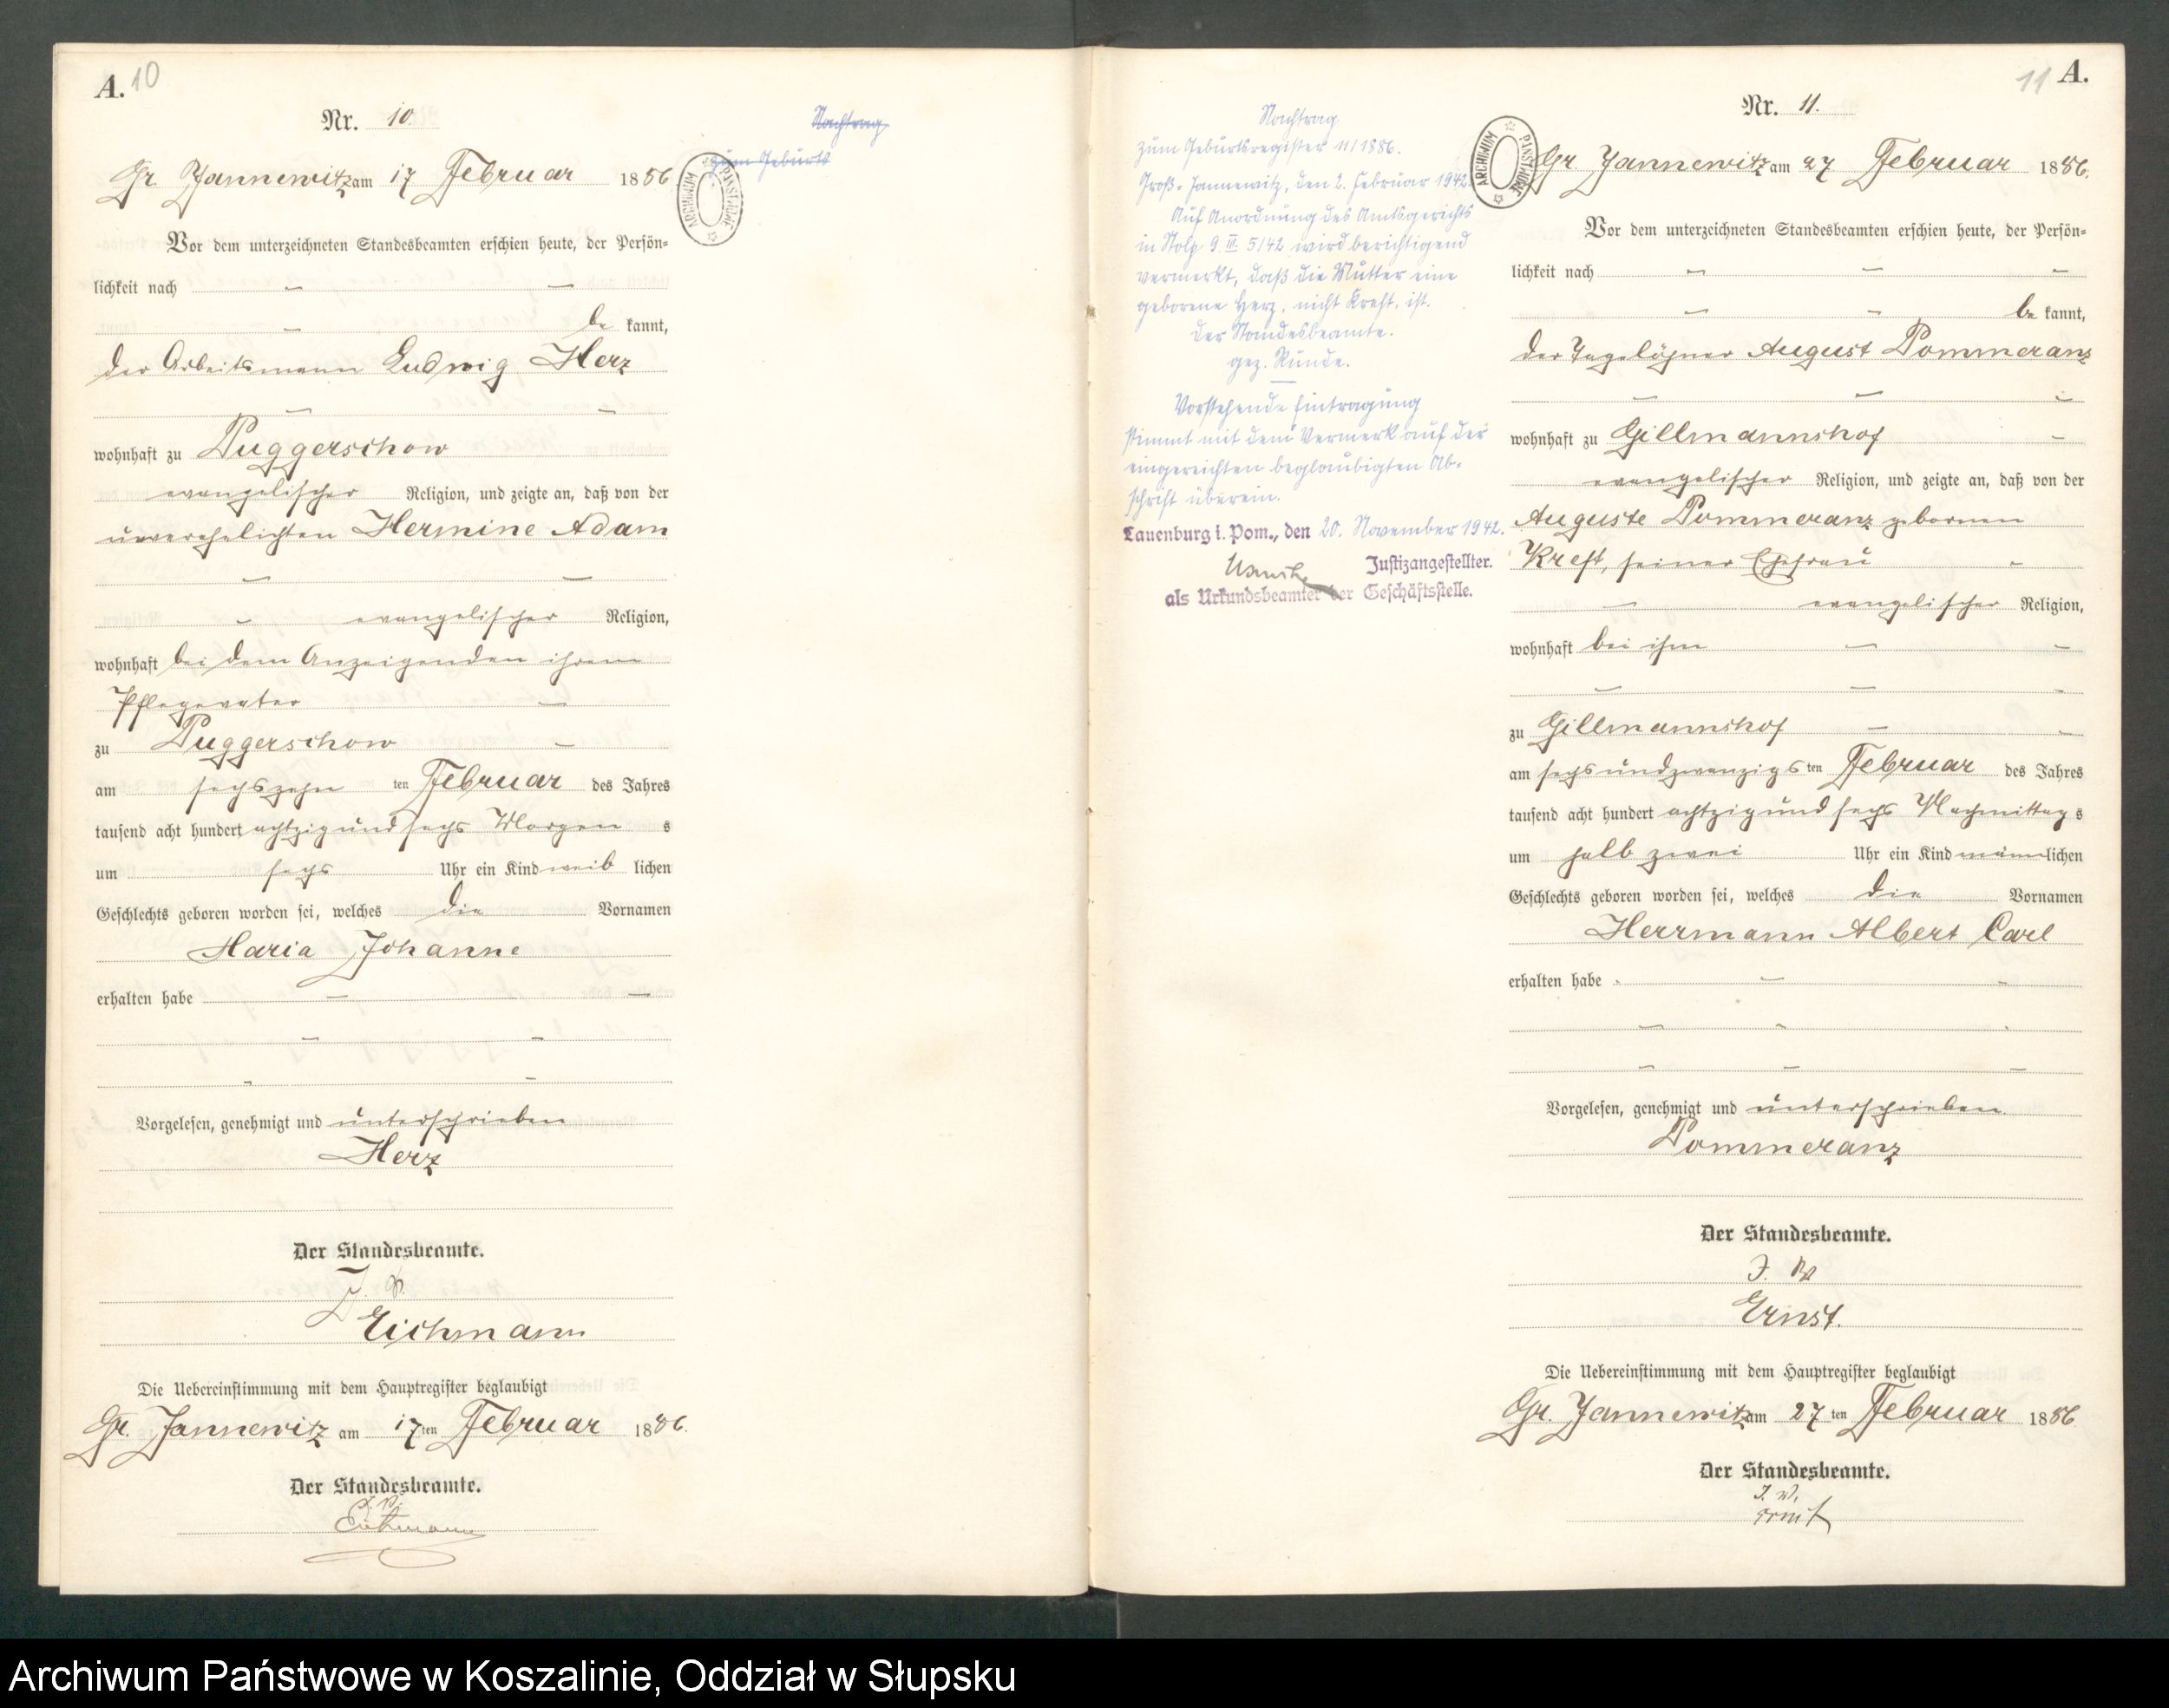 A. 10
Nr. 10.
Gr. Jannewitz am 17 Februar 1886
Vor dem unterzeichneten Standesbeamten erschien heute, der Persön-
lichkeit nach
be kannt,
der Arbeitsmann Ludwig Herz
wohnhaft zu Puggerschow
evangelischer Religion, und zeigte an, daß von der
unverehelichten Hermine Adam
evangelischer Religion,
wohnhaft bei dem Anzeigenden ihrem
Pflegevater
zu Puggerschow
am sechszehn ten Februar des Jahres
tausend acht hundert achtzig und sechs Morgen s
um sechs Uhr ein Kind weib lichen
Geschlechts geboren worden sei, welches die Vornamen
Maria Johanne
erhalten habe
Vorgelesen, genehmigt und unterschrieben
Herz
Der Standesbeamte.
J. V.
Eichmann
Die Uebereinstimmung mit dem Hauptregister beglaubigt
Gr. Jannewitz am 17 ten Februar 1886.
Der Standesbeamte.
J. V.
Eichmann
Nachtrag
zum Geburts
ARCHIWUM PAŃSTWOWE
Nachtrag
zum Geburtsregister 11/1886.
Groß-Jannewitz, den 2. Februar 1942
Auf Anordnung des Amtsgerichts
in Stolp 9. III. 5/42 wird berichtigend
vermerkt, daß die Mutter eine
geborene Herz, nicht Kreft, ist.
Der Standesbeamte.
gez. Runde.
Vorstehende Eintragung
stimmt mit dem Vermerk auf der
eingereichten beglaubigten Ab-
schrift überein.
Lauenburg i. Pom., den 20. November 1942.
Justizangestellter.
als Urkundsbeamter der Geschäftsstelle.
ARCHIWUM PAŃSTWOWE
11 A.
Nr. 11.
Gr. Jannewitz am 27 Februar 1886.
Vor dem unterzeichneten Standesbeamten erschien heute, der Persön-
lichkeit nach
be kannt,
der Tagelöhner August Pommeranz
wohnhaft zu Gillmannshof
evangelischer Religion, und zeigte an, daß von der
Auguste Pommeranz gebornen
Kreft, seiner Ehefrau
evangelischer Religion,
wohnhaft bei ihm
zu Gillmannshof
am sechsundzwanzigs ten Februar des Jahres
tausend acht hundert achtzig und sechs Nachmittag s
um halb zwei Uhr ein Kind männ lichen
Geschlechts geboren worden sei, welches die Vornamen
Herrmann Albert Carl
erhalten habe
Vorgelesen, genehmigt und unterschrieben
Pommeranz
Der Standesbeamte.
J. V.
Ernst.
Die Uebereinstimmung mit dem Hauptregister beglaubigt
Gr. Jannewitz am 27 ten Februar 1886
Der Standesbeamte.
J. V.
Ernst
Archiwum Państwowe w Koszalinie, Oddział w Słupsku